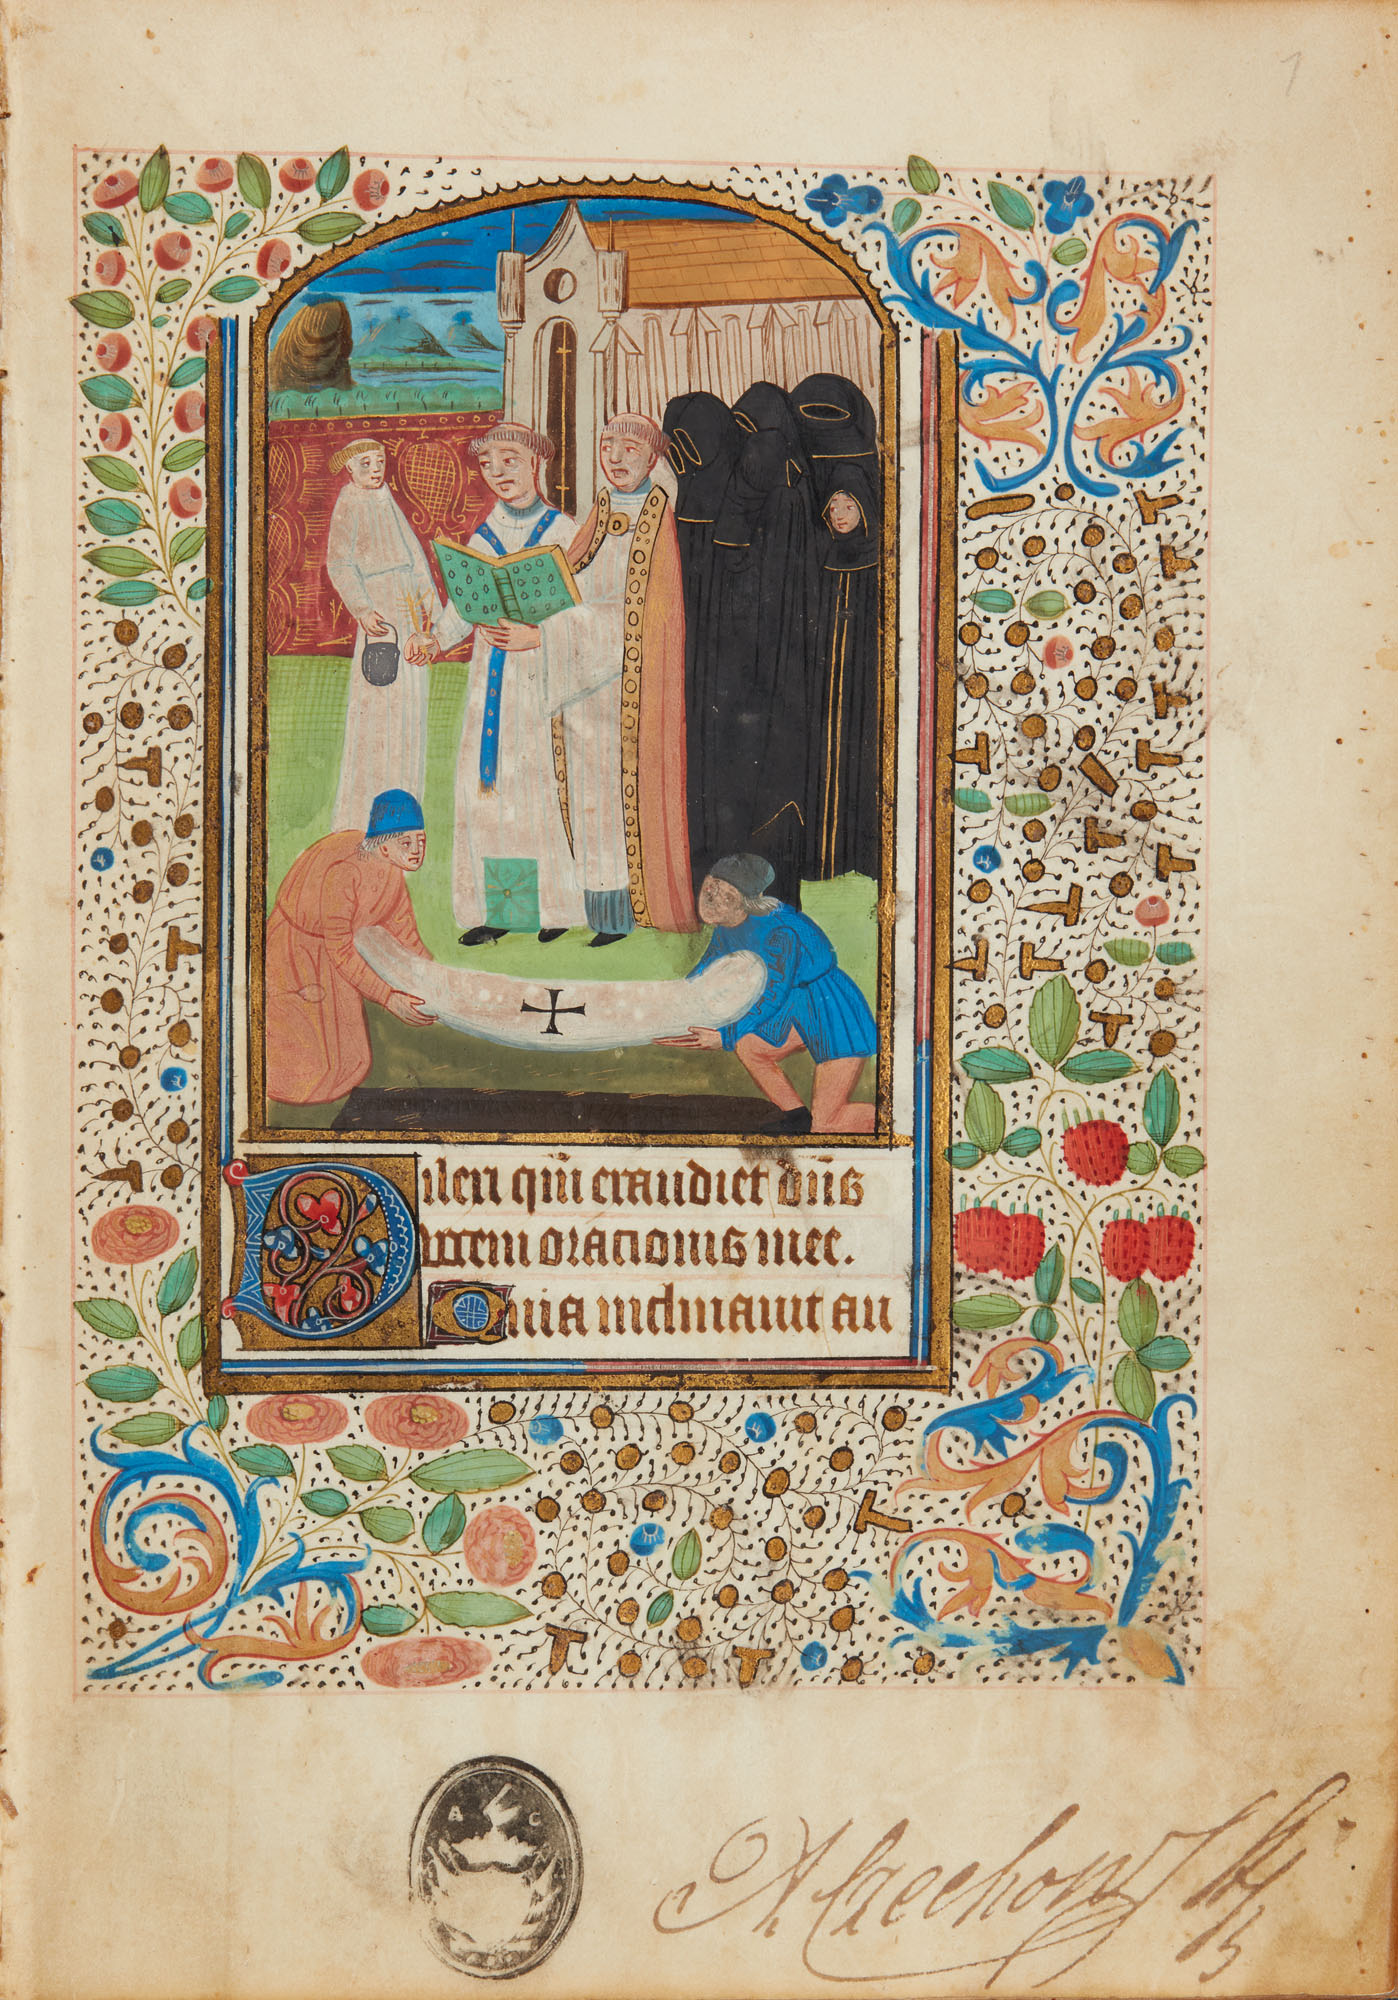 1
Dilexi qm̄ exaudiet dn̄s
vocem orationis mee.
Quia inclinavit au
A C